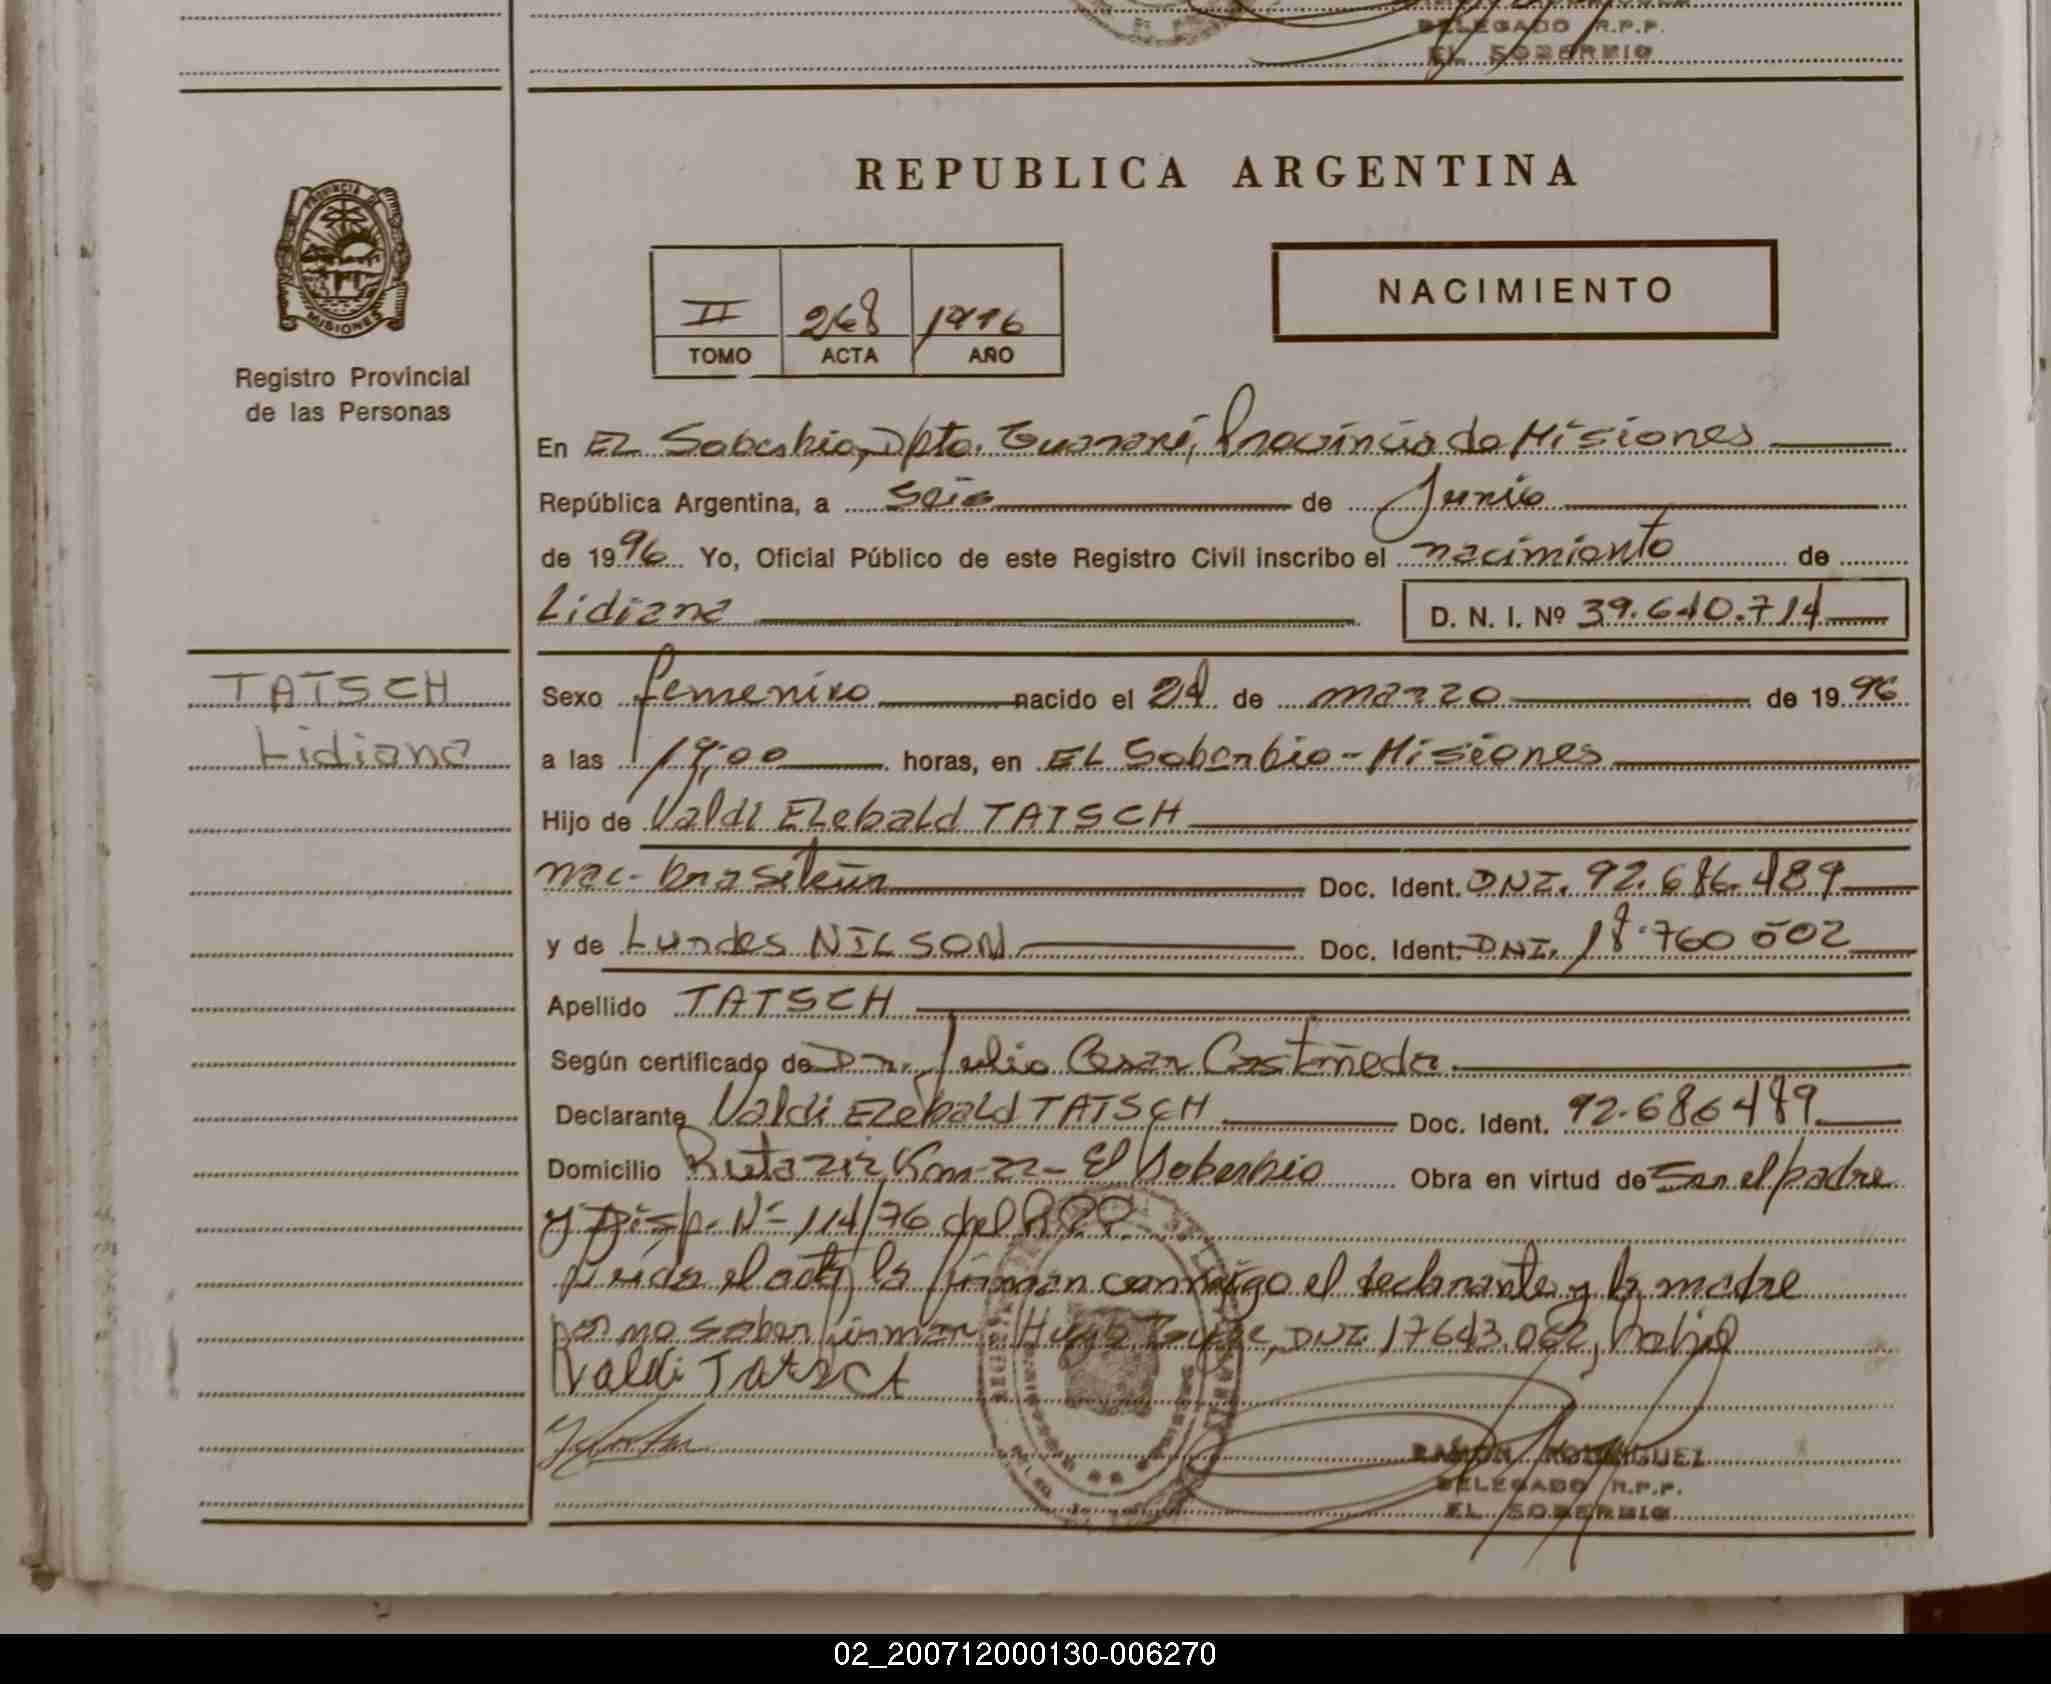 DELEGADO R.P.P.
EL SOBERBIO
REPUBLICA ARGENTINA
PROVINCIA DE
MISIONES
Registro Provincial
de las Personas
II 268 1996
TOMO ACTA AÑO
NACIMIENTO
En EL Soberbio, Dpto. Guaraní, Provincia de Misiones
República Argentina, a Seis de Junio
de 1996 Yo, Oficial Público de este Registro Civil inscribo el nacimiento de
Lidiana D. N. I. Nº 39.640.714
TATSCH
Lidiana
Sexo femenino nacido el 24 de marzo de 1996
a las 19,00 horas, en EL Soberbio - Misiones
Hijo de Valdi ELebald TATSCH
nac- brasileña Doc. Ident. DNI. 92.686.489
y de Lurdes NILSON Doc. Ident. DNI. 18.760 502
Apellido TATSCH
Según certificado de Dr. Julio Cesar Castañeda
Declarante Valdi ELebald TATSCH Doc. Ident. 92.686489
Domicilio Ruta 212 Km-22- El Soberbio Obra en virtud de Ser el padre
y Disp. Nº 114/76 del R.P.P.
Leída el acta la firman conmigo el declarante y la madre
por no saber firmar Hugo DNI. 17643.062,
Valdi Tatsch
RAMON RODRIGUEZ
DELEGADO R.P.P.
EL SOBERBIO
02_200712000130-006270